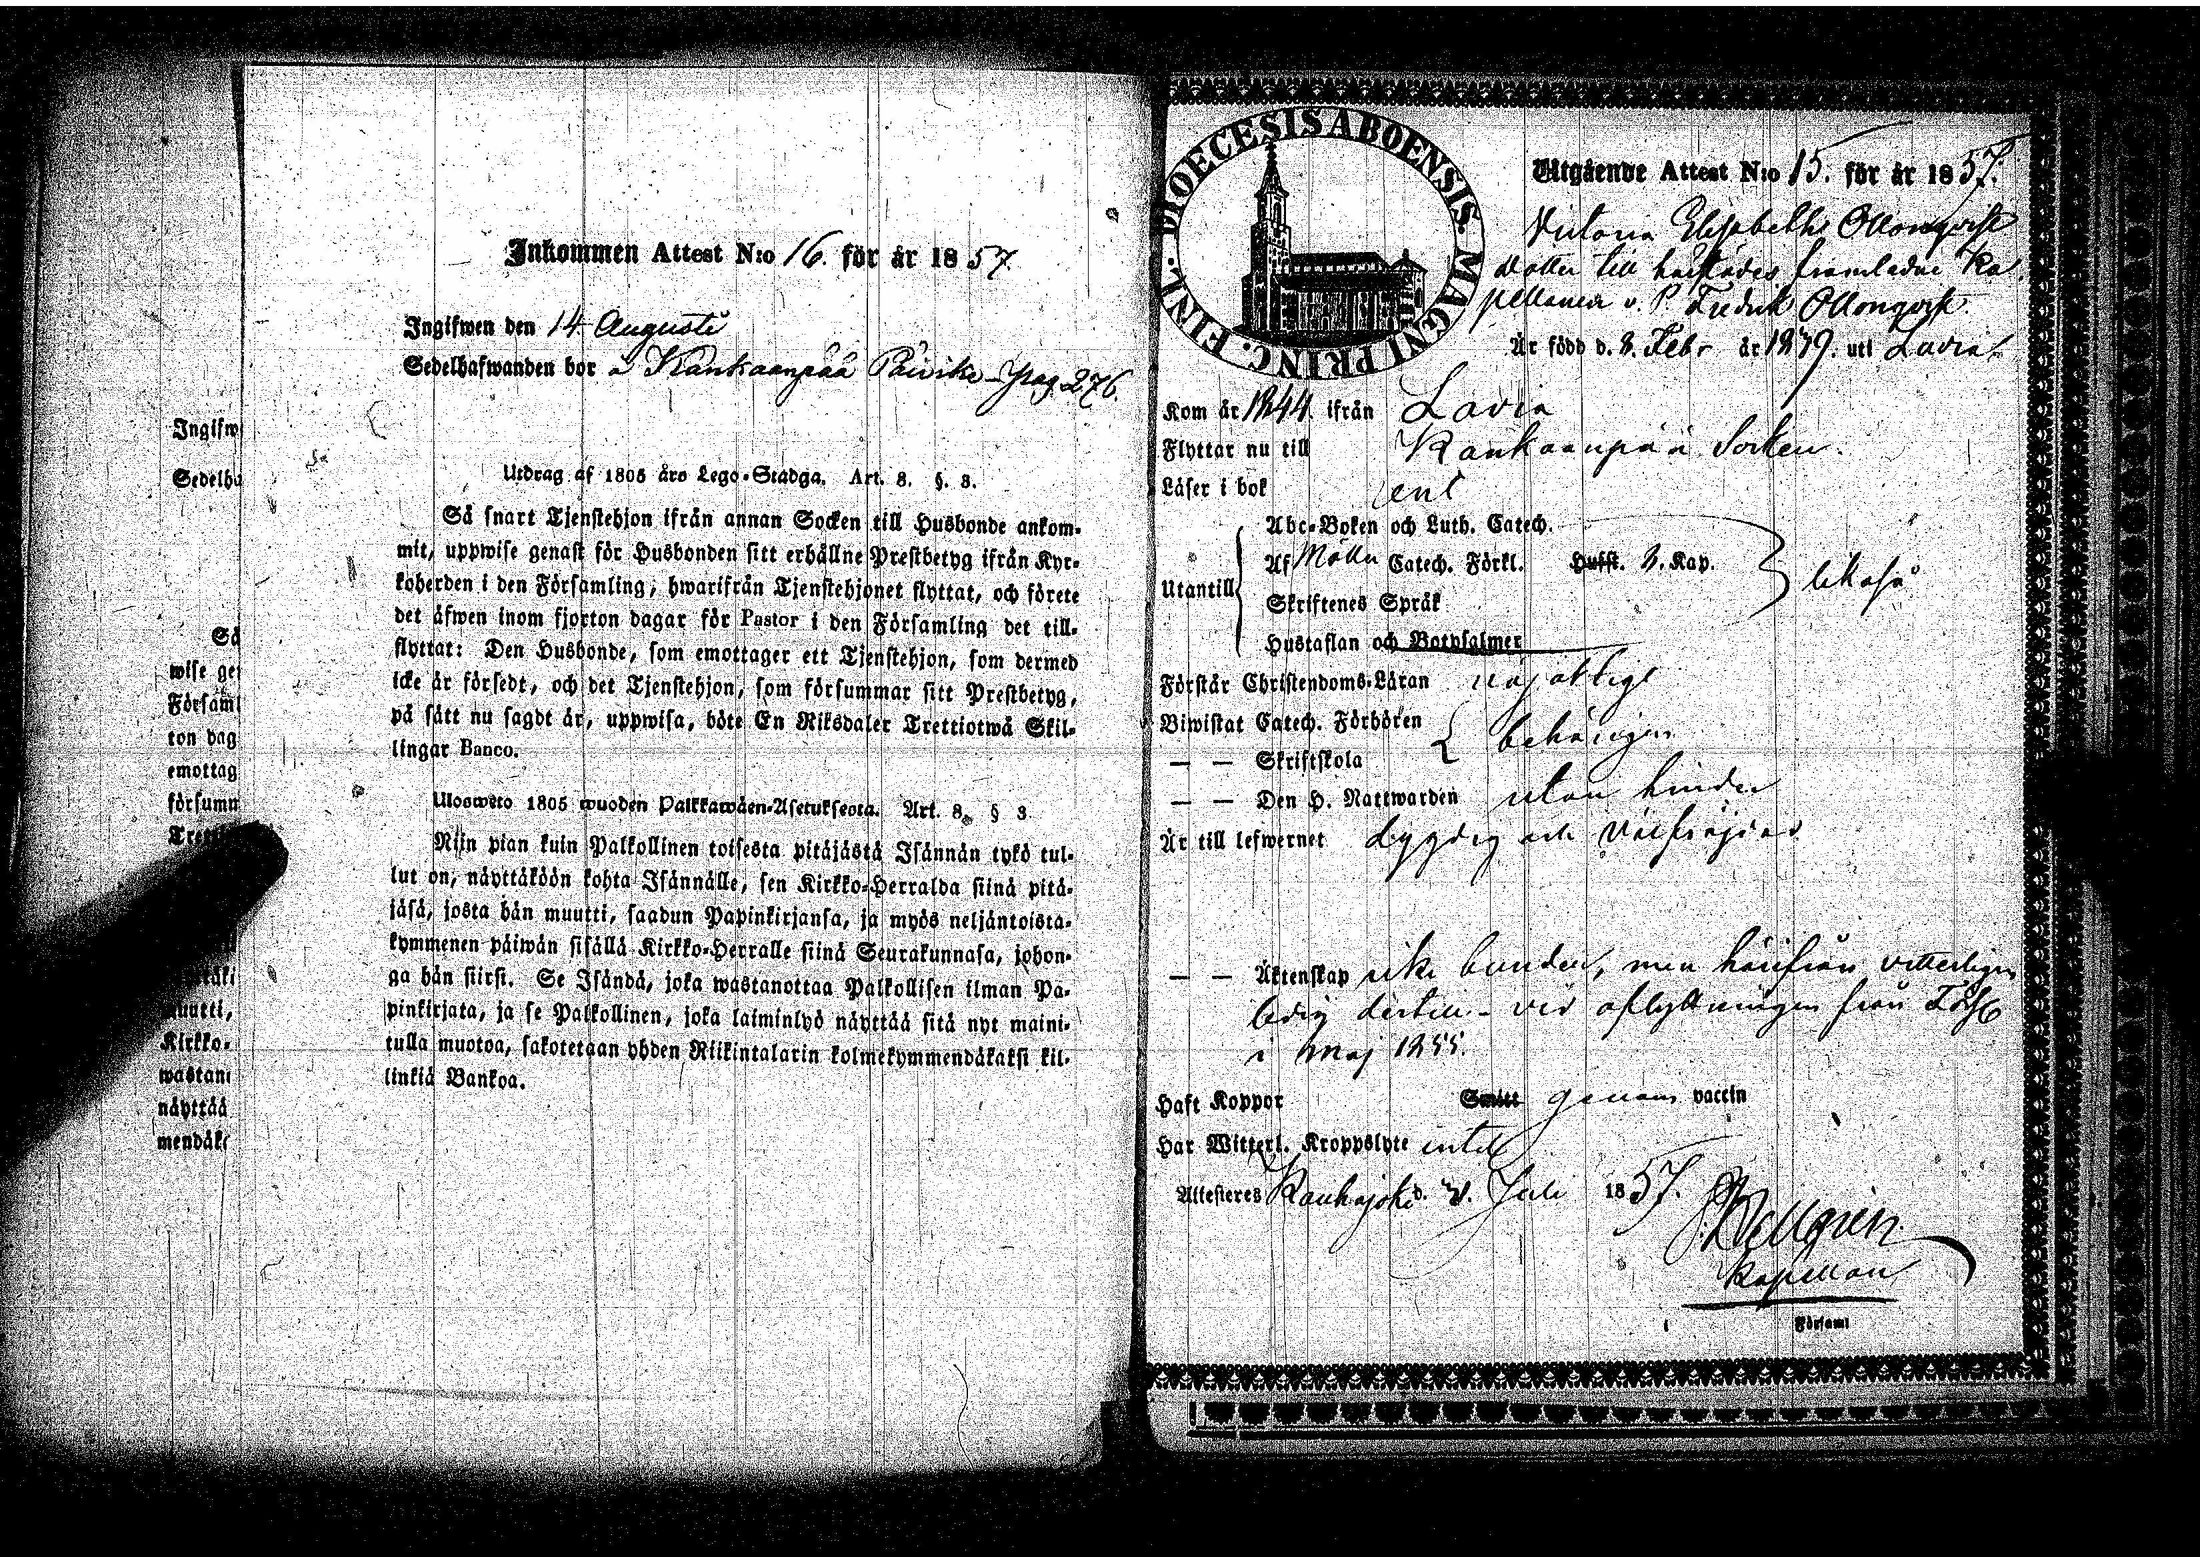 Inkommen Attest N:o 16. för år 1857.
Ingifwen den 14 Augusti
Sedelhafwanden bor å Kankaanpää Päivike pag. 276.
Utdrag af 1805 års Lego-Stadga. Art. 8. §. 3.
Så snart Tjenstehjon ifrån annan Socken till Husbonde ankom-
mit, uppwise genast för Husbonden sitt erhållne Prestbetyg ifrån Kyr-
koherden i den Församling, hwarifrån Tjenstehjonet flyttat, och förete
det äfwen inom fjorton dagar för Pastor i den Församling det till-
flyttat: Den Husbonde, som emottager ett Tjenstehjon, som dermed
icke är försedt, och det Tjenstehjon, som försummar sitt Prestbetyg,
på sätt nu sagdt är, uppwisa, böte En Riksdaler Trettiotwå Skil-
lingar Banco.
Ulosweto 1805 wuoden Palkkawäen-Asetuksesta. Art. 8. § 3
Niin pian kuin Palkollinen toisesta pitäjästä Isännän tykö tul-
lut on, näyttäköön kohta Isännälle, sen Kirkko-Herralda siinä pitä-
jäsä, josta hän muutti, saadun Papinkirjansa, ja myös neljäntoista-
kymmenen päiwän sisällä Kirkko-Herralle siinä Seurakunnasa, johon-
ga hän siirsi. Se Isändä, joka wastanottaa Palkollisen ilman Pa-
pinkirjata, ja se Palkollinen, joka laiminlyö näyttää sitä nyt maini-
tulla muotoa, sakotetaan yhden Riikintalarin kolmekymmendäkaksi kil-
linkiä Bankoa.
Ingifw
Sedelha
Så
wise ge
Församl
ton dag
emottag
försumn
muutti,
Kirkko-
wastan
näyttää
mendäk
DIOECESIS ABOENSIS. MAGNI PRINC. FINL.
Utgående Attest N:o 15. för år 1857.
Victoria Elisabeth Ollonqvist
dotter till härstädes framledne Ka
pellanen v. P. Fredrik Ollonqvist.
Är född d. 8. Febr år 1839. uti Lavia
Kom år 1844. ifrån Lavia
Flyttar nu till Kankaanpää Socken.
Läser i bok rent
Utantill
Abc-Boken och Luth. Catech.
Af Catech. Förkl. Hufst. 8. Kap.
likaså
Skriftenes Språk
Hustaflan och Botpsalmer
Förstår Christendoms-Läran nöjaktigt
Biwistat Catech. Förhören
behörigen
— — Skriftskola
— — Den H. Nattwarden utan hinder
Är till lefwernet dygdig och välfräjdad
— — Äktenskap icke bunden, men härifrån vitterligen
ledig dertill vid aflyttningen från
i Maj 1855.
Haft Koppor Smitt genom vaccin
Har Witterl. Kroppslyte intet
Attesteres Kauhajoki d. Juli 1857.
Kapellan
Församl